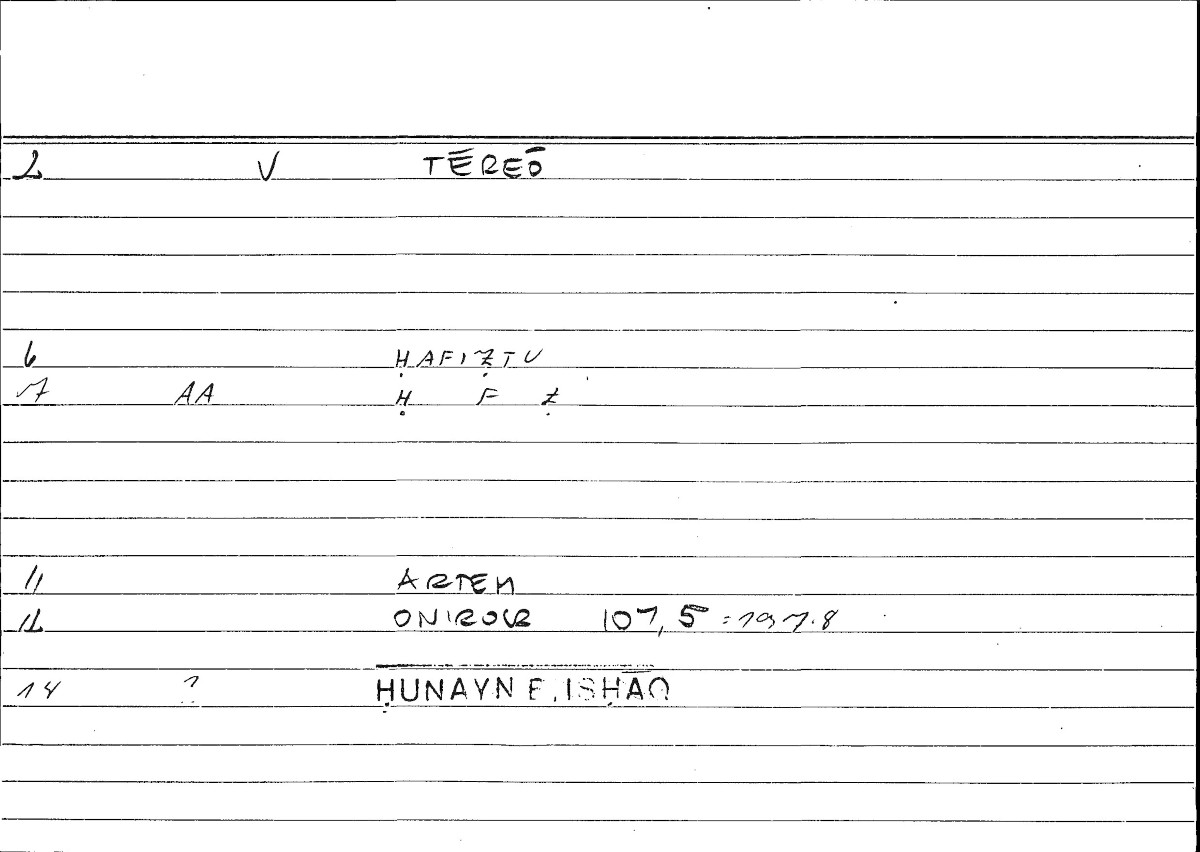 2 V TĒREŌ
6 ḤAFIẒTU
7 AA Ḥ F Ẓ
11 ARTEM
12 ONIROCR 107,5 = 197.8
14 ? ḤUNAYN B. ISḤĀQ